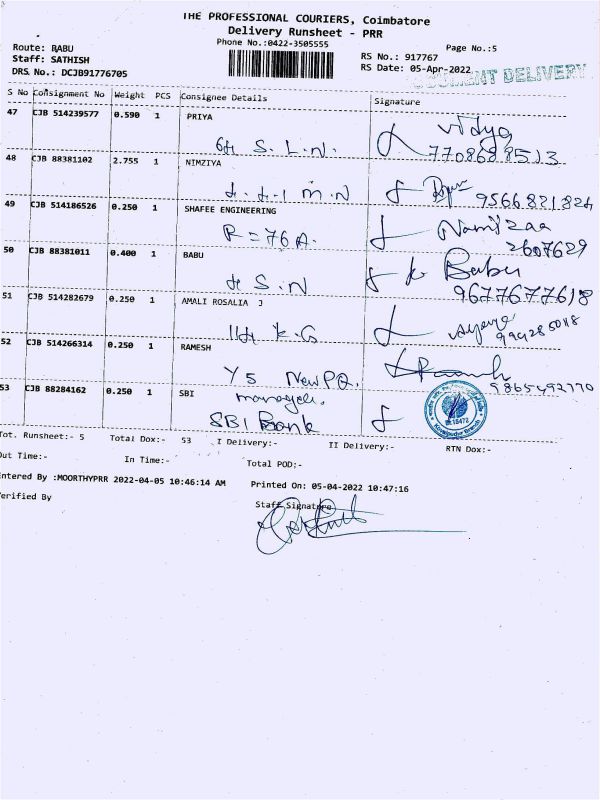 THE PROFESSIONAL COURIERS, Coimbatore
Delivery Runsheet - PRR
Phone No.:0422-3505555
Page No.:5
Route: BABU
Staff: SATHISH
DRS No.: DCJB91776705
RS No.: 917767
RS Date: 05-Apr-2022
DELIVERY
S No Consignment No Weight PCS Consignee Details Signature
47 CJB 514239577 0.590 1 PRIYA Vidya
6th S.L.N. 7708688513
48 CJB 88381102 2.755 1 NIMZIYA
M.N 9566821824
49 CJB 514186526 0.250 1 SHAFEE ENGINEERING
R=76A. 2607629
50 CJB 88381011 0.400 1 BABU Babu
S.N 9677677618
51 CJB 514282679 0.250 1 AMALI ROSALIA J
11th K.G 9942850118
52 CJB 514266314 0.250 1 RAMESH
Y5 New PQ. 9865492770
53 CJB 88284162 0.250 1 SBI manager.
SBI Bank
Tot. Runsheet:- 5 Total Dox:- 53 I Delivery:- II Delivery:- RTN Dox:-
Out Time:- In Time:- Total POD:-
Entered By :MOORTHYPRR 2022-04-05 10:46:14 AM Printed On: 05-04-2022 10:47:16
Verified By Staff Signature